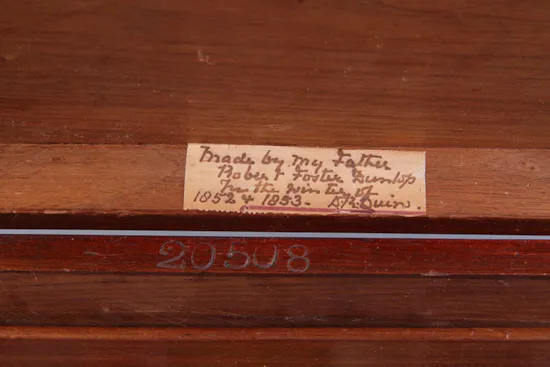 Made by my Father
Robert Foster Dunlop
In the winter of
1852 & 1853.
20508